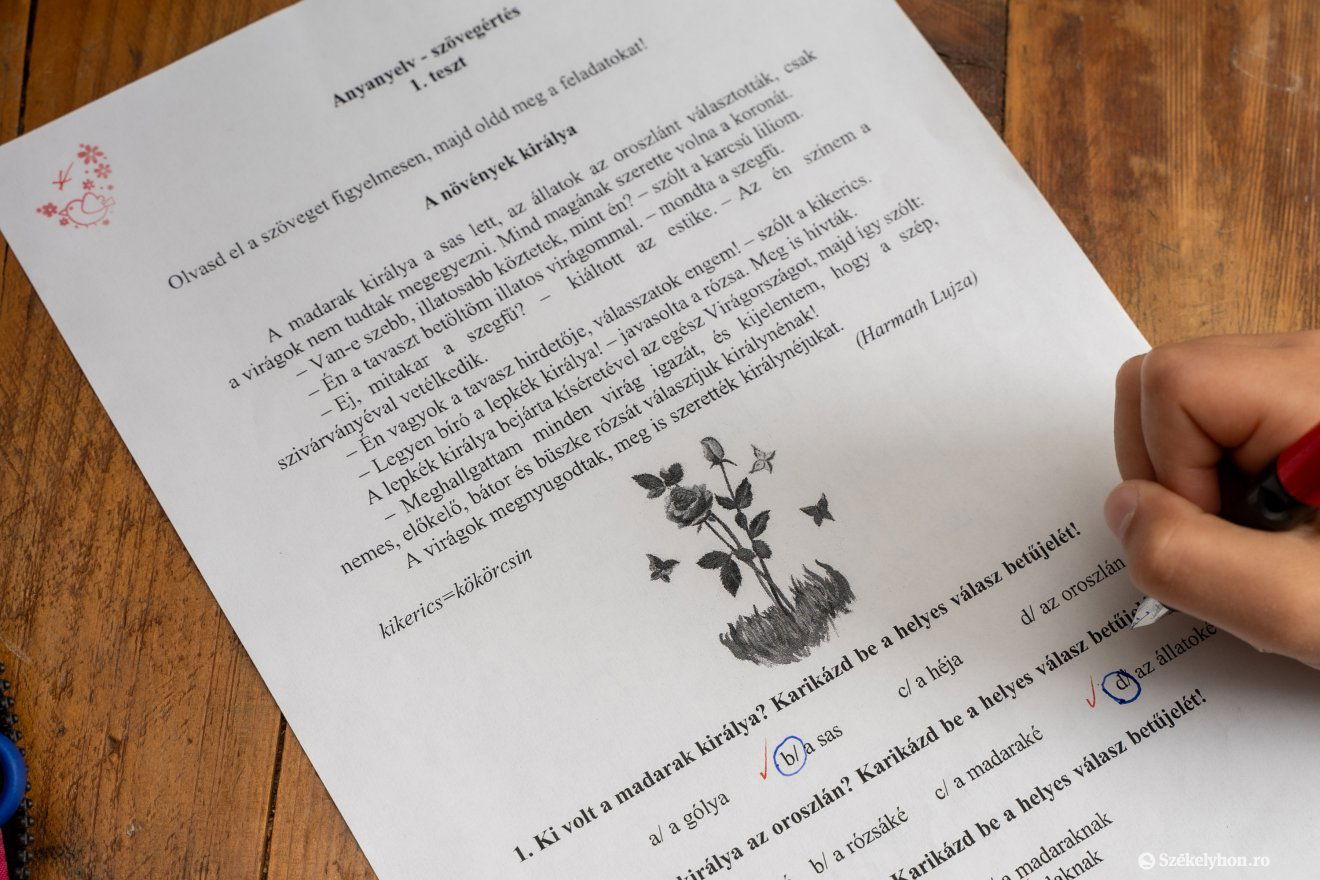 Anyanyelv - szövegértés
I. teszt
Olvasd el a szöveget figyelmesen, majd oldd meg a feladatokat!
A növények királya
A madarak királya a sas lett, az állatok az oroszlánt választották, csak
a virágok nem tudtak megegyezni. Mind magának szerette volna a koronát.
– Van-e szebb, illatosabb köztetek, mint én? – szólt a karcsú liliom.
– Én a tavaszt betöltöm illatos virágommal. – mondta a szegfű.
– Ej, mitakar a szegfű? – kiáltott az estike. – Az én színem a
szivárványéval vetélkedik.
– Én vagyok a tavasz hirdetője, válasszatok engem! – szólt a kikerics.
– Legyen bíró a lepkék királya! – javasolta a rózsa. Meg is hívták.
A lepkék királya bejárta kíséretével az egész Virágországot, majd így szólt:
– Meghallgattam minden virág igazát, és kijelentem, hogy a szép,
nemes, előkelő, bátor és büszke rózsát választjuk királynénak!
A virágok megnyugodtak, meg is szerették királynéjukat.
(Harmath Lujza)
kikerics=kökörcsin
1. Ki volt a madarak királya? Karikázd be a helyes válasz betűjelét!
a/ a gólya b/ a sas c/ a héja d/ az oroszlán
királya az oroszlán? Karikázd be a helyes válasz
b/ a rózsáké c/ a madaraké d/ az állatoké
Karikázd be a helyes válasz betűjelét!
a madaraknak
Székelyhon.ro